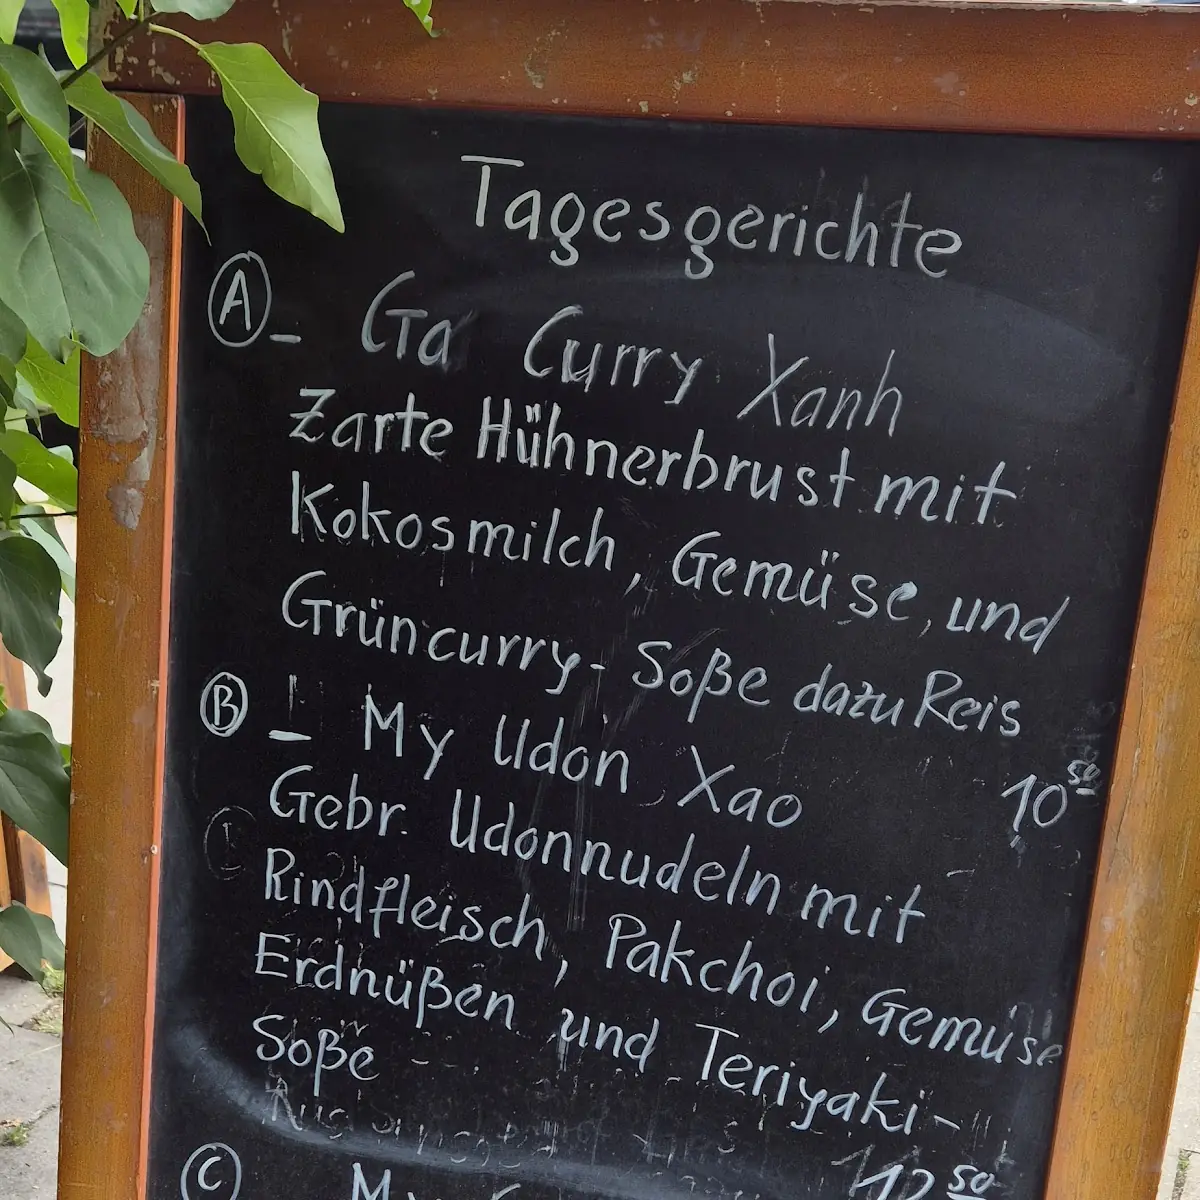 Tagesgerichte
A - Ga Curry Xanh
Zarte Hühnerbrust mit
Kokosmilch, Gemüse, und
Grüncurry- Soße dazu Reis
10 50
B - My Udon Xao
Gebr. Udonnudeln mit
Rindfleisch, Pakchoi, Gemüse
Erdnüßen und Teriyaki-
Soße
12 50
C